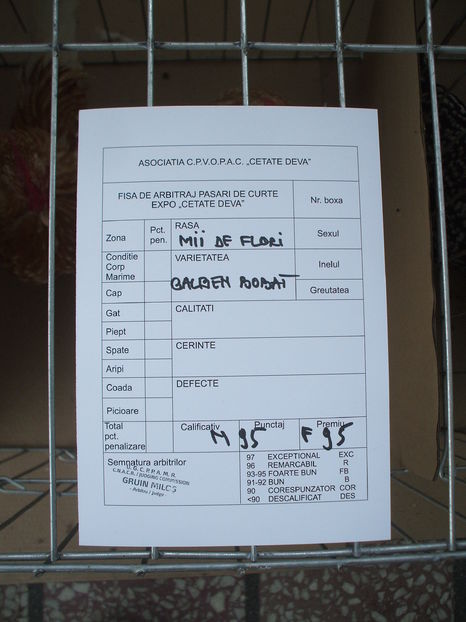 ASOCIATIA C.P.V.O.P.A.C. „CETATE DEVA"
FISA DE ARBITRAJ PASARI DE CURTE
EXPO „CETATE DEVA"
Nr. boxa
Zona
Pct. pen.
RASA
MII DE FLORI
Sexul
Conditie
Corp
Marime
VARIETATEA
GALBEN BOBAT
Inelul
Cap
Greutatea
Gat
CALITATI
Piept
Spate
CERINTE
Aripi
Coada
DEFECTE
Picioare
Total
pct.
penalizare
Calificativ
Punctaj
Premiu
M 95
F 95
Semnatura arbitrilor
U.G.C.P.P.A.M.R.
C.N.A.C.B. / JUDGING COMMISSION
GRUIN MILOS
- Arbitru / Judge -
97 EXCEPTIONAL EXC
96 REMARCABIL R
93-95 FOARTE BUN FB
91-92 BUN B
90 CORESPUNZATOR COR
<90 DESCALIFICAT DES